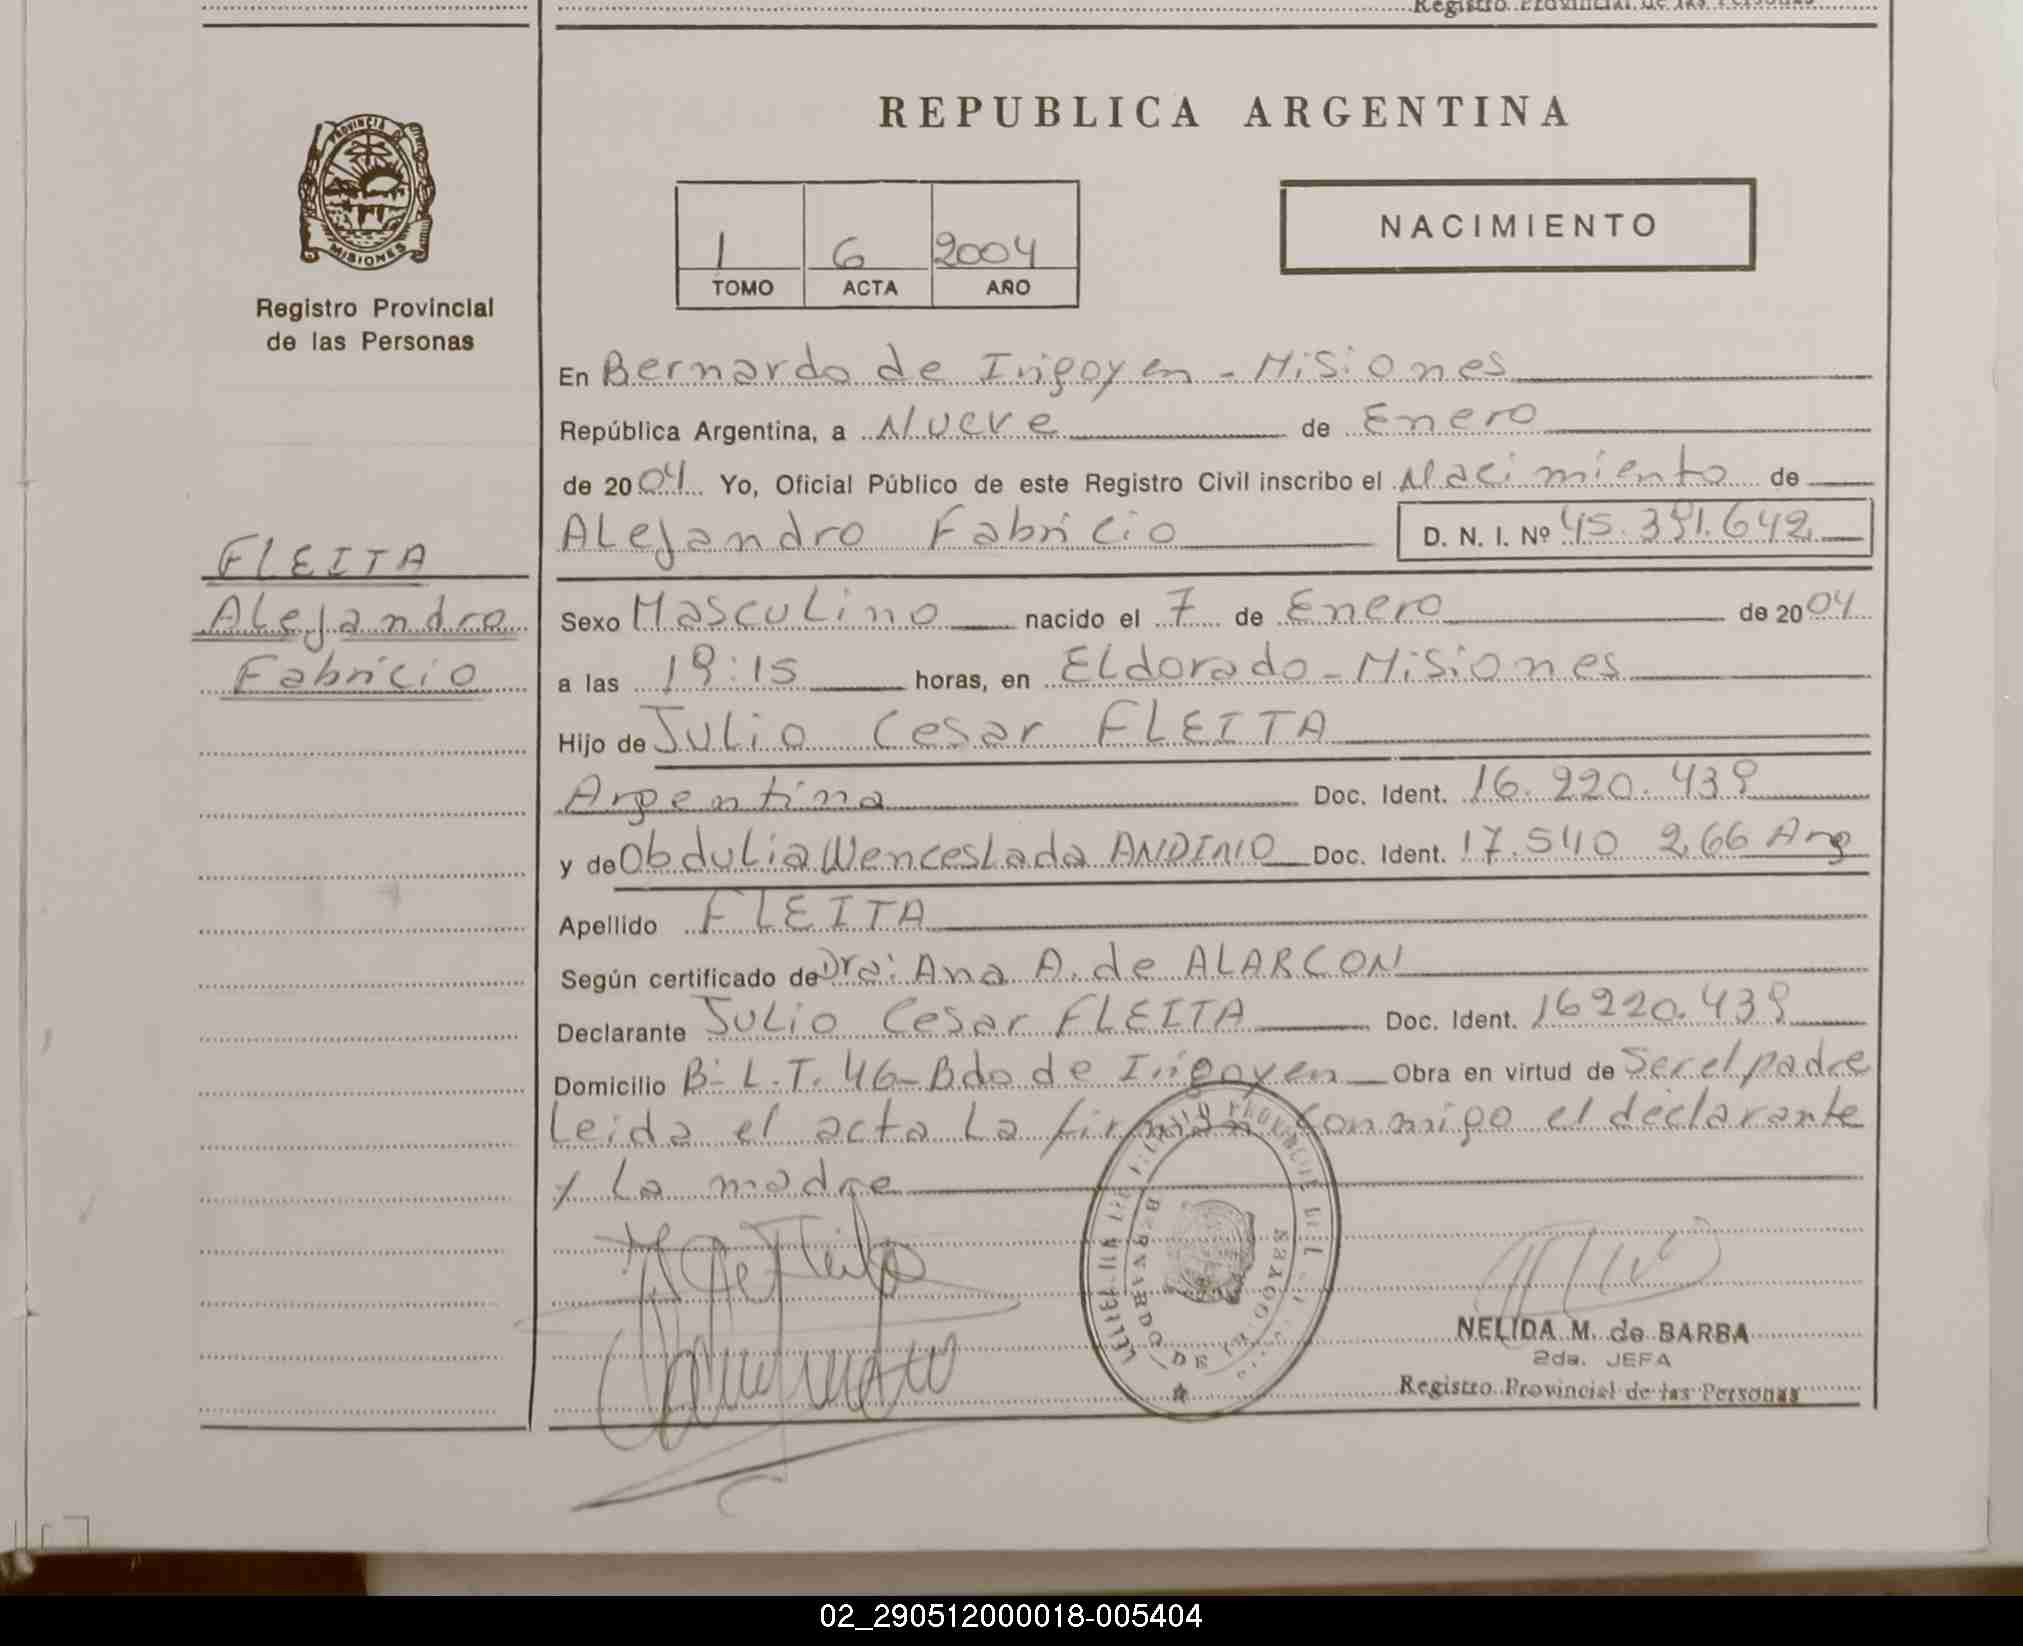 Registro Provincial de las Personas
REPUBLICA ARGENTINA
PROVINCIA DE
MISIONES
Registro Provincial
de las Personas
1 6 2004
TOMO ACTA AÑO
NACIMIENTO
En Bernardo de Irigoyen - Misiones
República Argentina, a Nueve de Enero
de 2004 Yo, Oficial Público de este Registro Civil inscribo el Nacimiento de
Alejandro Fabricio D. N. I. Nº 45.391.642
FLEITA
Alejandro
Fabricio
Sexo Masculino nacido el 7 de Enero de 2004
a las 19:15 horas, en Eldorado - Misiones
Hijo de Julio Cesar FLEITA
Argentina Doc. Ident. 16.220.439
y de Obdulia Wenceslada ANDINO Doc. Ident. 17.540 266 Arg
Apellido FLEITA
Según certificado de Dra: Ana A. de ALARCON
Declarante Julio Cesar FLEITA Doc. Ident. 16220.439
Domicilio B: L.T. 46 - Bdo de Irigoyen Obra en virtud de Ser el padre
Leida el acta La firman conmigo el declarante
y La madre
BERNARDO DE IRIGOYEN
NELIDA M. de BARBA
2da. JEFA
Registro Provincial de las Personas
02_290512000018-005404